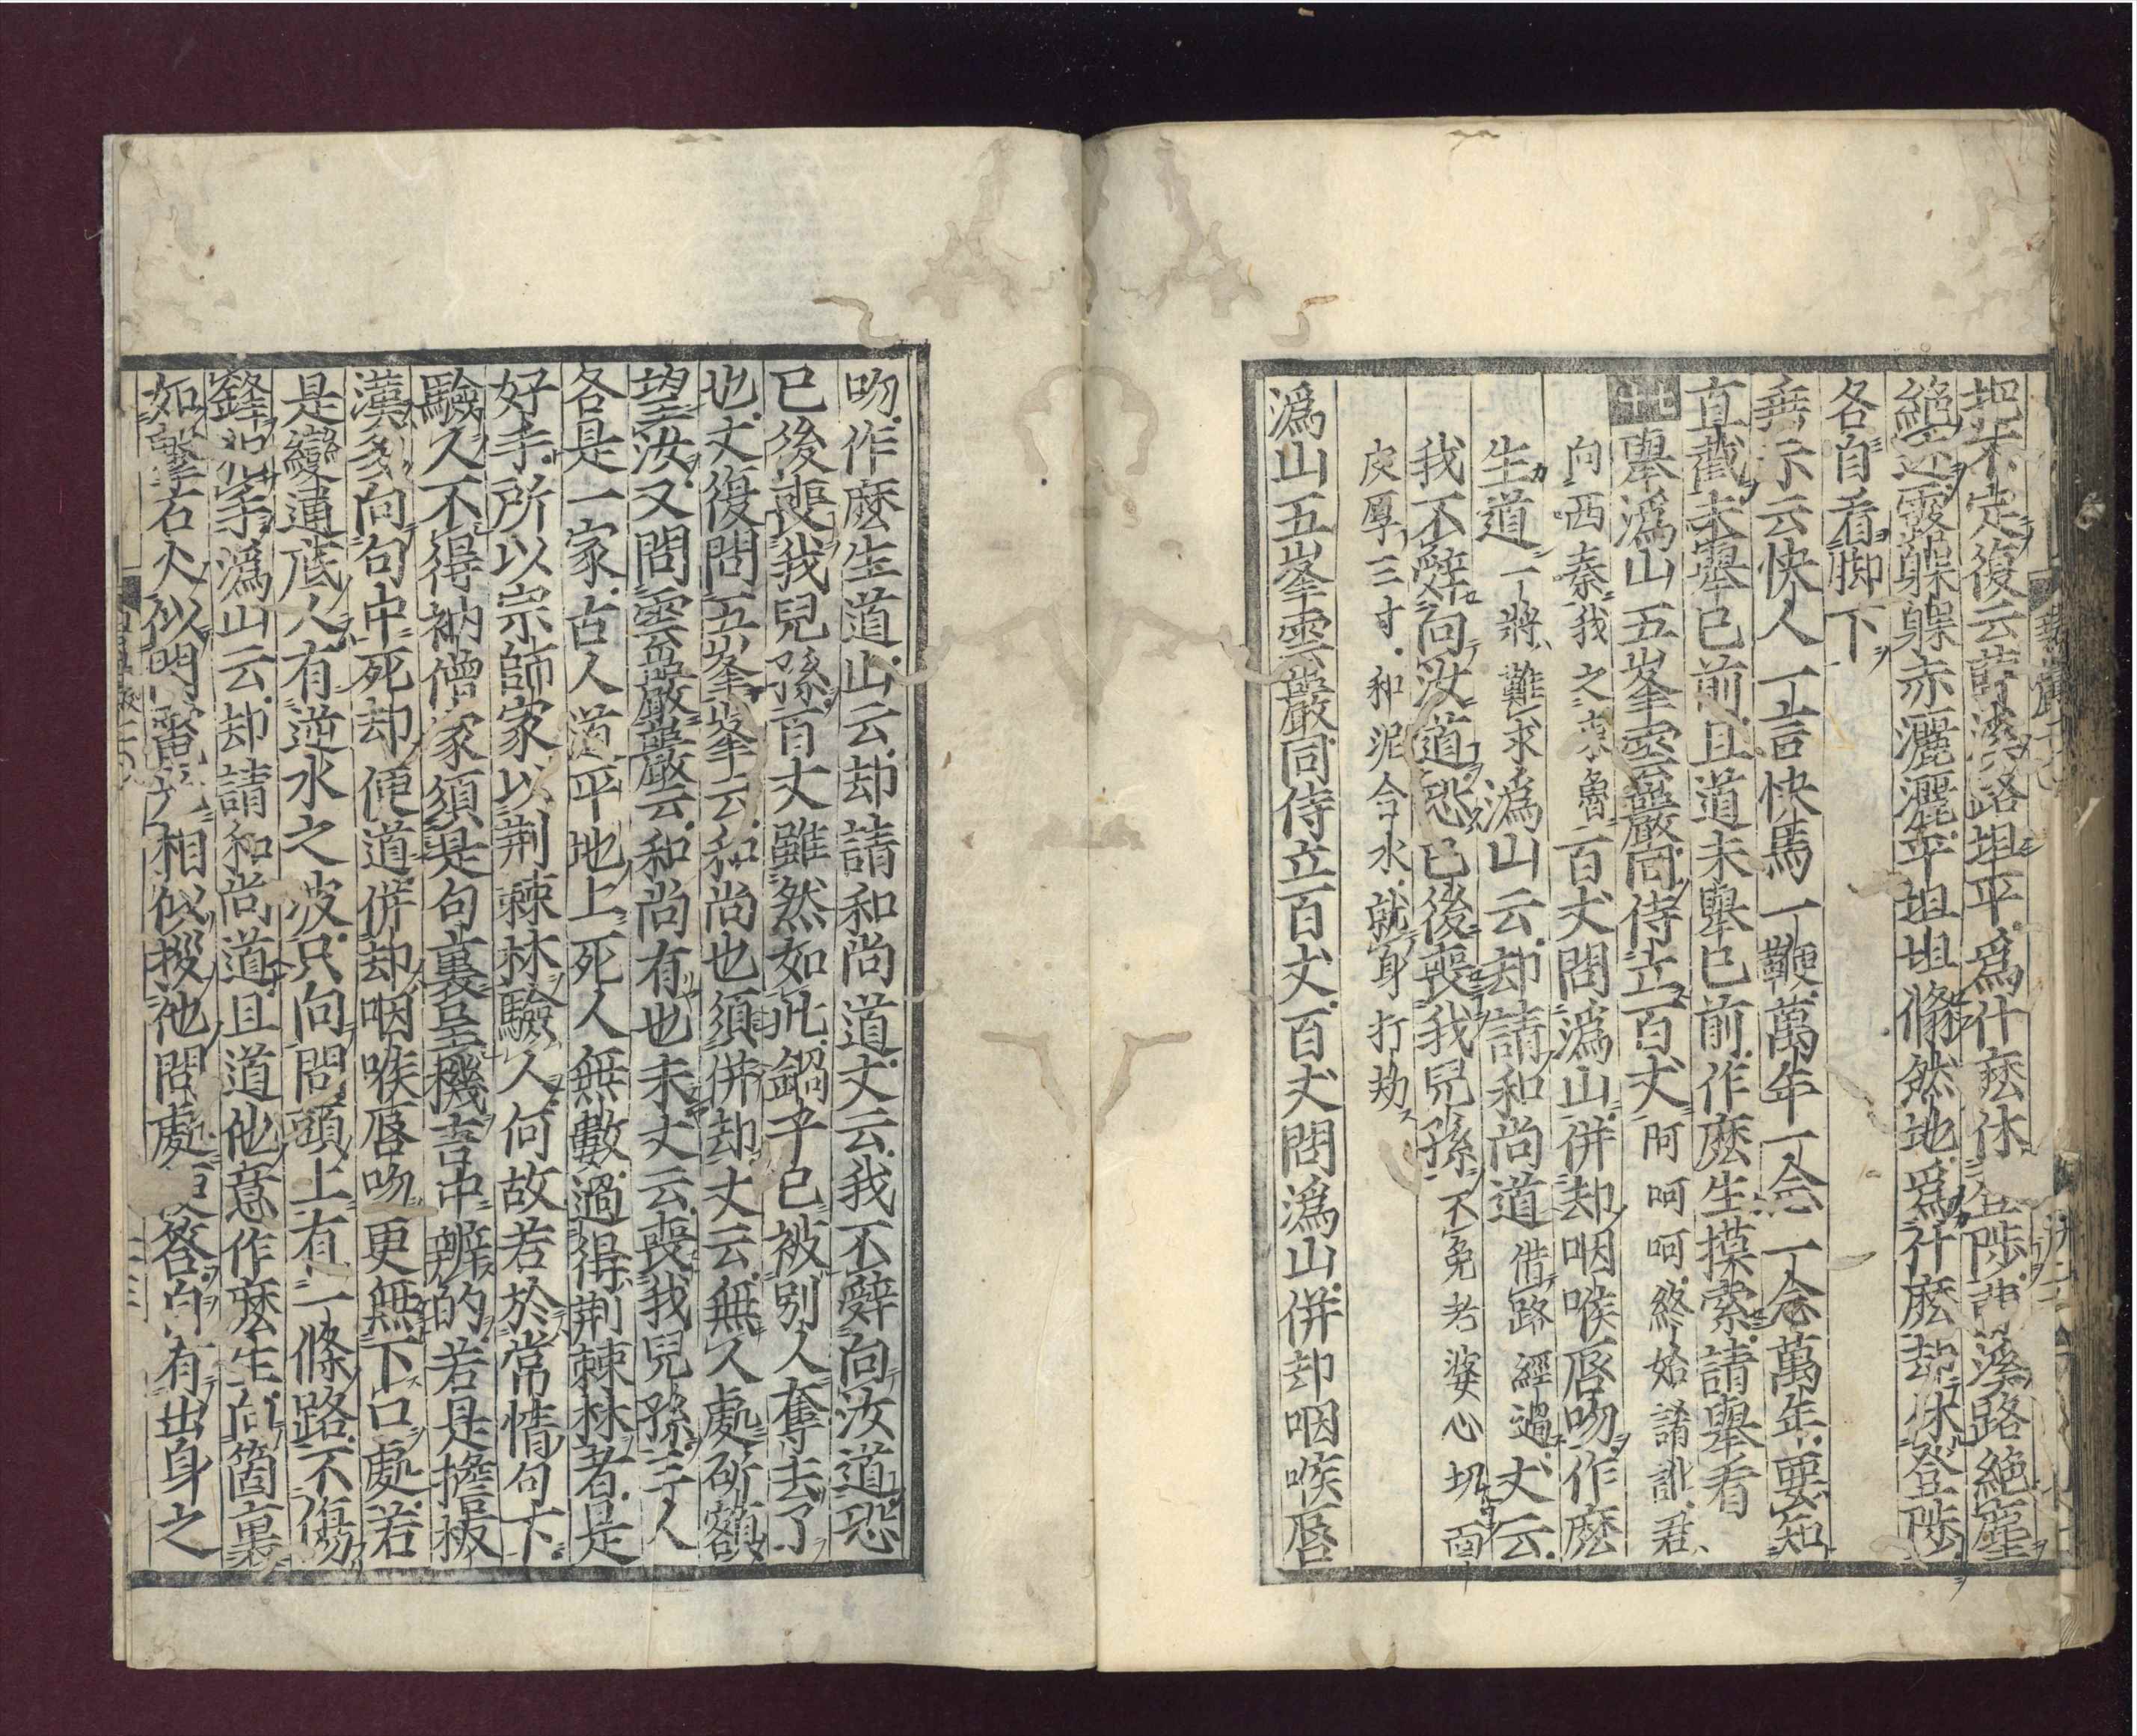 把不定復云葛溪路坦平爲什麽休登陟葛溪路絶塵
絶迹露躶躶赤灑灑平坦坦翛然地爲什麽却休登陟
各自看脚下
垂示云快人一言快馬一鞭萬年一念一念萬年要知
直截未舉已前且道未舉已前作麽生摸索請舉看
七十 舉潙山五峯雲巖同侍立百丈 阿呵呵終始誵訛君
向西秦我之東魯 百丈問潙山併却咽喉唇吻作麽
生道 一將難求 潙山云却請和尚道 借路經過 丈云
我不辭向汝道恐已後喪我兒孫 不免老婆心切面
皮厚三寸和泥合水就身打劫
潙山五峯雲巖同侍立百丈百丈問潙山併却咽喉唇
吻作麽生道山云却請和尚道丈云我不辭向汝道恐
已後喪我兒孫百丈雖然如此鍋子已被別人奪去了
也丈復問五峯峯云和尚也須併却丈云無人處斫額
望汝又問雲巖巖云和尚有也未丈云喪我兒孫三人
各是一家古人道平地上死人無數過得荆棘林者是
好手所以宗師家以荆棘林驗人何故若於常情句下
驗人不得衲僧家須是句裏呈機言中辨的若是擔板
漢多向句中死却便道併却咽喉唇吻更無下口處若
是變通底人有逆水之波只向問頭上有一條路不傷
鋒犯手潙山云却請和尚道且道他意作麽生向箇裏
如擊石火似閃電光相似拶他問處便答自有出身之